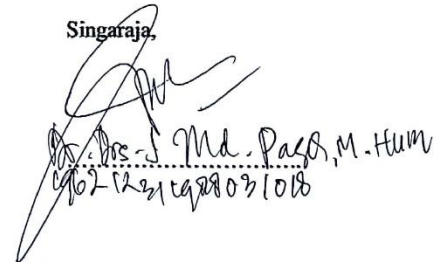 Singaraja,
Dr. Drs. I Md. Pageh, M. Hum
196212311988031018